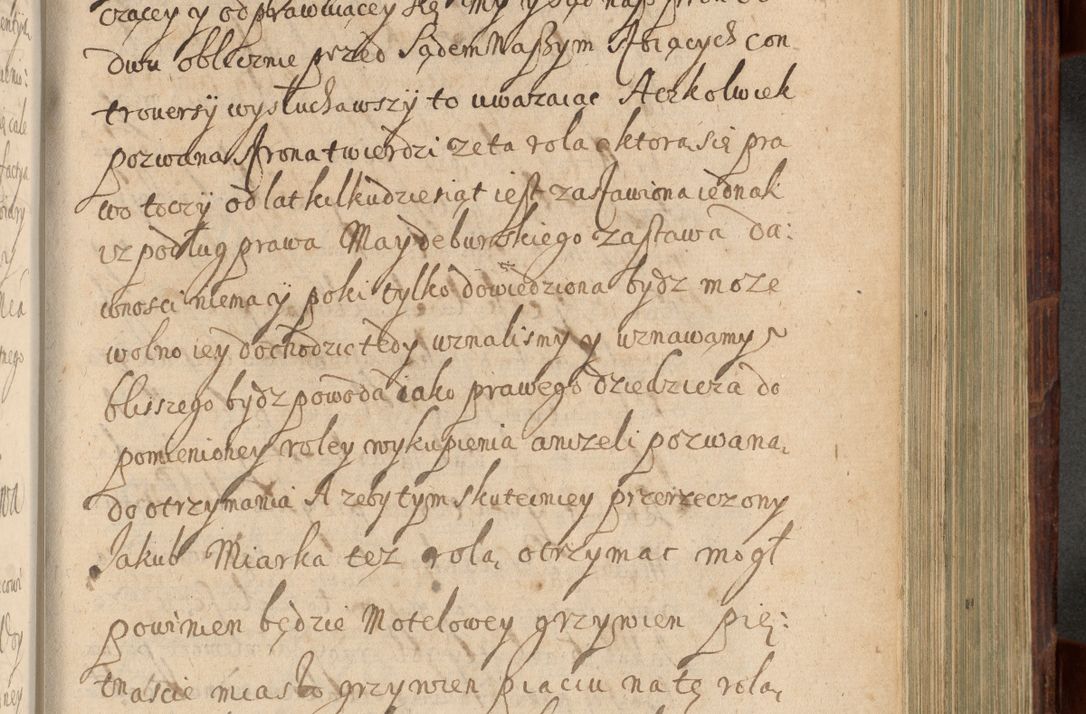 czącey y odprawuiącey się my ysąd nasz
dwu oblicznie przed Sądem Waszym stoiących con
troversy wysłuchawszy to uwazaiąc Aczkolwiek
pozwana strona twierdzi ze ta rola o ktorą się pra
wo toczy od lat kilkudziesiąt iest zastawiona iednak
yz podług prawa Maydeburskiego zastawa da:
wnosci niema y poki tylko dowiedziona bydz moze
wolno iey dochodzic tedy uznalismy y uznawamy
blisszego bydz powoda iako prawego dziedzica do
pomienioney roley wykupienia anizeli pozwaną
do otrzymania A zeby tym skuteczniey przerzeczony
Jakub Miarka tez rolą otrzymac mogł
powinien będzie Motelowey grzywien pię:
tnascie miasto grzywien piąciu na tę rolą